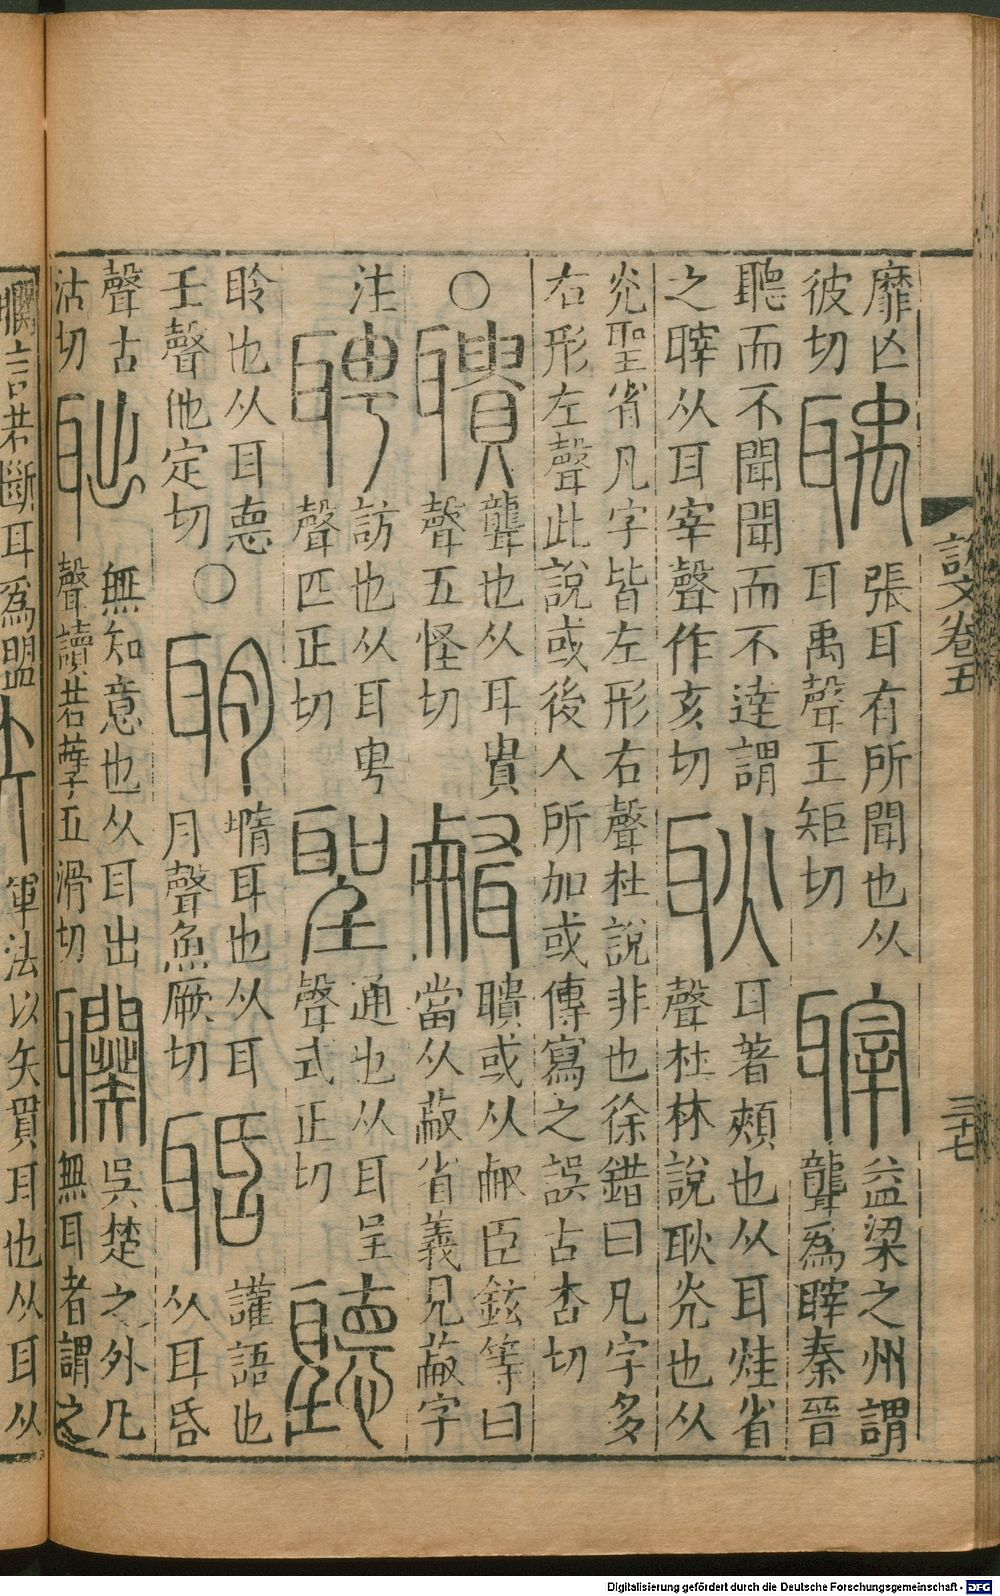 說文卷五
三十七
靡凶
彼切
聥
張耳有所聞也从
耳禹聲王矩切
䏁
益梁之州謂
聾爲䏁秦晉
聽而不聞聞而不達謂
之䏁从耳宰聲作亥切
耿
耳著頰也从耳烓省
聲杜林說耿灮也从
灮聖省凡字皆左形右聲杜說非也徐鍇曰凡字多
右形左聲此說或後人所加或傳寫之誤古杏切
○
聵
聾也从耳貴
聲五怪切
聵或从臣鉉等曰
當从蔽省義見蔽字
注
聘
訪也从耳甹
聲匹正切
聖
通也从耳呈
聲式正切
聽
聆也从耳悳
壬聲他定切
○
聉
墯耳也从耳
月聲魚厥切
聒
讙語也
从耳昏
聲古
沽切
無知意也从耳出
聲讀若孽五滑切
吳楚之外凡
無耳者謂之
言若斷耳爲盟
聅
軍法以矢貫耳也从耳从